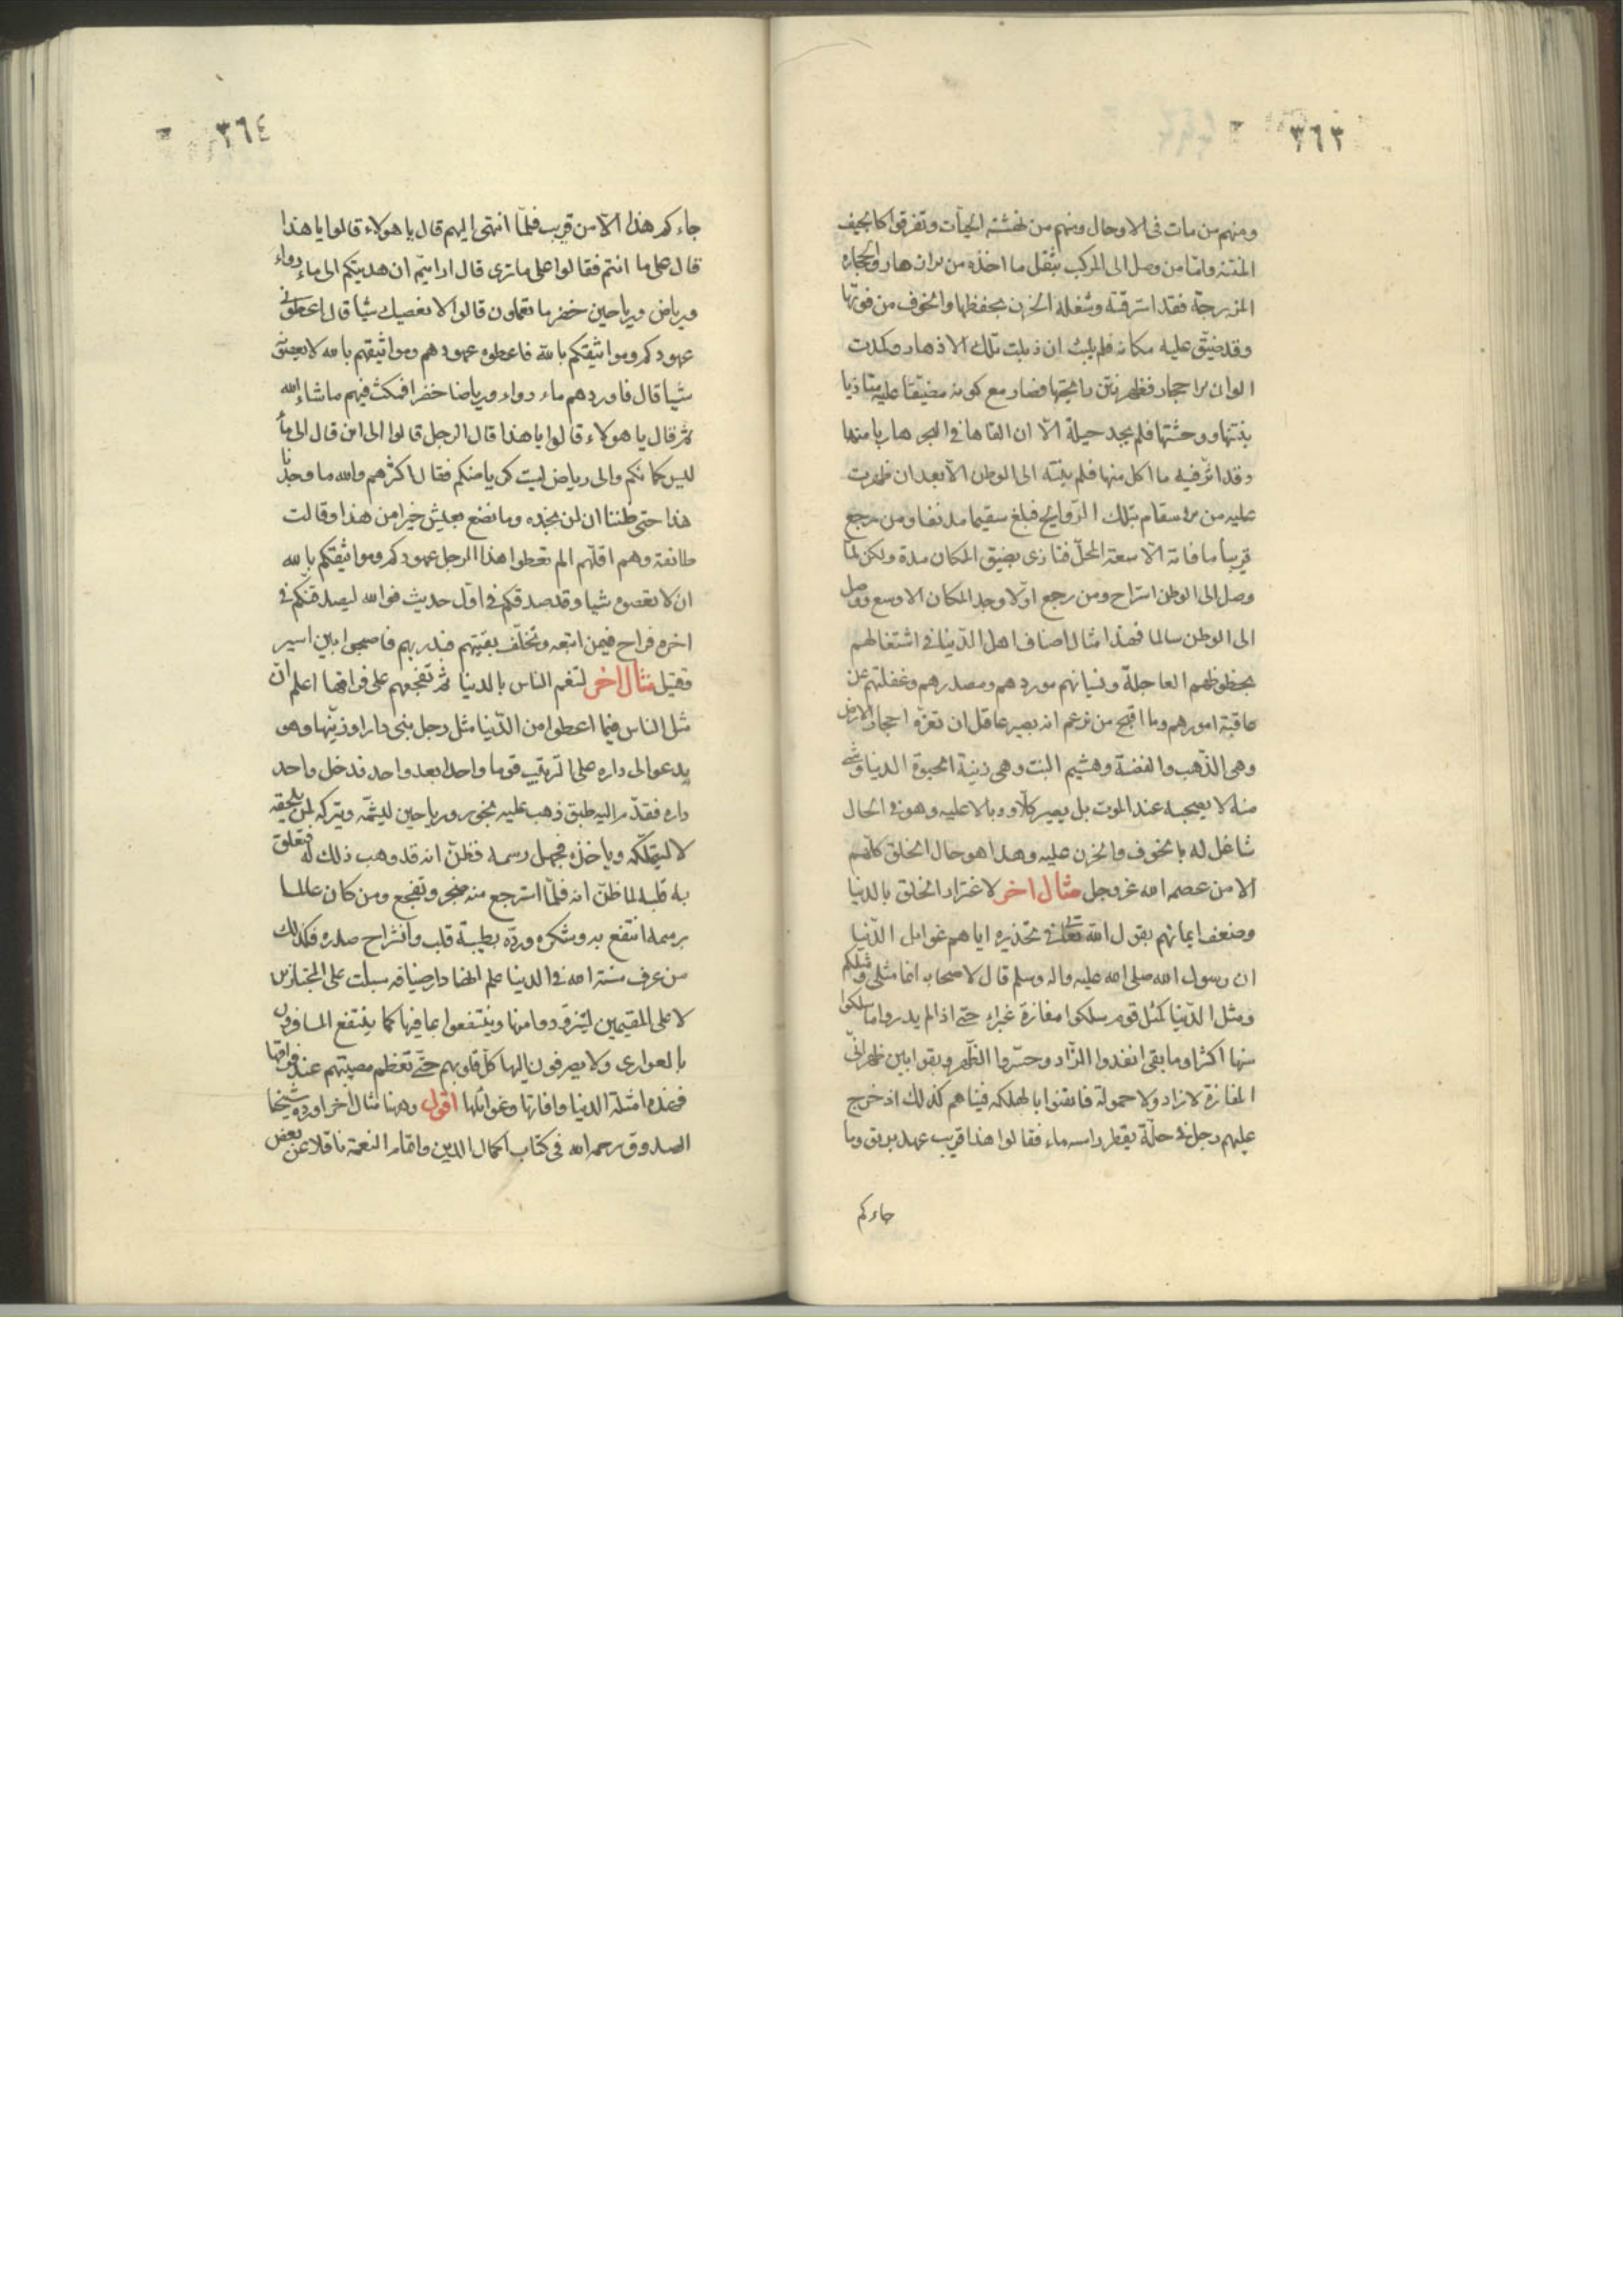 ٣٦٣
ومنهم من مات فى الاوحال ومنهم من نهشته الحيات وتفرقوا كالجيف
المنتنه وامّا من وصل الى المركب بثقل ما اخذه من الازهار والحجارة
المزبرجة فقد استرقته وشغله الحزن بحفظها والخوف من فوتها
وقد ضيّق عليه مكانه فلم يلبث ان ذبلت تلك الازهار وكمدت
الوان الاحجار فظهر نتن رايحتها فصار مع كونه مضيّقا عليه متاذيا
بنتنها ووحشتها فلم يجد حيلة الّا ان القاها فى البحر هاربا منها
وقد اثّر فيه ما اكل منها فلم ينته الى الوطن الّا بعد ان ظهرت
عليه من الاسقام بتلك الرّوايح فبلغ سقيما مدنفا ومن رجع
قريبا ما فاته الّا سعة المحلّ فتاذى بضيق المكان مدة ولكن لمّا
وصل الى الوطن استراح ومن رجع اوّلا وجد المكان الاوسع ووصل
الى الوطن سالما فهذا مثال اصناف اهل الدّنيا فى اشتغالهم
بحظوظهم العاجلة ونسيانهم موردهم ومصدرهم وغفلتهم عن
عاقبة امورهم وما اقبح من تزعم انه بصير عاقل ان تغرّه احجار الارض
وهى الذّهب والفضة وهشيم النبت وهى زينة الحيوة الدنيا وشئ
منه لا يصحبه عند الموت بل يصير كلّا ووبالا عليه وهو فى الحال
شاغل له بالخوف والحزن عليه وهذا هو حال الخلق كلّهم
الا من عصمه الله عز وجل مثال اخر لاغترار الخلق بالدنيا
وضعف ايمانهم بقول الله تعالى فى تحذيره اياهم غوايل الدّنيا
ان رسول الله صلى الله عليه واله وسلم قال لاصحابه انما مثلى ومثلكم
ومثل الدّنيا كمثل قوم سلكوا مفازة غبراء حتى اذا لم يدروا ما سلكوا
منها اكثر او ما بقى انفدوا الزّاد وحسّروا الظّهر وبقوا بين ظهرانّى
المفازة لا زاد ولا حمولة فايقنوا بالهلكه فبينا هم كذلك اذ خرج
عليهم رجل فى حلّة يقطر راسه ماء فقالوا هذا قريب عهد بريق وما
جاءكم
٣٦٤
جاءكم هذا الّا من قريب فلمّا انتهى اليهم قال يا هولاء قالوا يا هذا
قال على ما انتم فقالوا على ما ترى قال ارايتم ان هديتكم الى ماء رواء
ورياض ورياحين خضر ما تعملون قالوا لا نعصيك شيا قال اعطونى
عهودكم ومواثيقكم بالله فاعطوه عهودهم ومواثيقهم بالله لا يعصونه
شيا قال فاوردهم ماء رواء ورياضا خضرا فمكث فيهم ما شاء الله
ثم قال يا هولاء قالوا يا هذا قال الرحيل قالوا الى اين قال الى ماء
ليس كمائكم والى رياض ليست كرياضكم فقال اكثرهم والله ما وجدنا
هذا حتى ظننا ان لن نجده وما نصنع بعيش خير من هذا وقالت
طائفة وهم اقلّهم الم تعطوا هذا الرجل عهودكم ومواثيقكم بالله
ان لا تعصوه شيا وقد صدقكم فى اوّل حديث فوالله ليصدقنّكم فى
اخره فراح فيمن اتبعه وتخلّف بقيّتهم فندر بهم فاصبحوا بين اسير
وقتيل مثال اخر لتنعم الناس بالدنيا ثم تفجعهم على فراقها اعلم انّ
مثل الناس فيما اعطوا من الدّنيا مثل رجل بنى دارا وزيّنها وهو
يدعو الى داره على الترتيب قوما واحدا بعد واحد فدخل واحد
داره فقدّم اليه طبق ذهب عليه بخور ورياحين ليشمّه ويتركه لمن يلحقه
لا ليتملّكه وياخذه فجهل رسمه فظنّ انه قد وهب ذلك له فتعلق
به قلبه لما ظنّ انه فلمّا استرجع منه ضجر وتفجع ومن كان عالما
برسمه انتفع به وشكره وردّه بطيبة قلب وانشراح صدره فكذلك
من عرف سنة الله فى الدنيا علم انها دار ضيافه سبلت على المجتازين
لا على المقيمين ليتزوّدوا منها وينتفعوا بما فيها كما ينتفع المسافرون
بالعوارى ولا يصرفون اليها كلّ قلوبهم حتّى تعظم مصيبتهم عند فراقها
فهذه امثلة الدنيا وافاتها وغوائلها اقول وههنا مثال اخر اورده شيخنا
الصدوق رحمه الله فى كتاب اكمال الدين واتمام النعمة ناقلا عن بعض